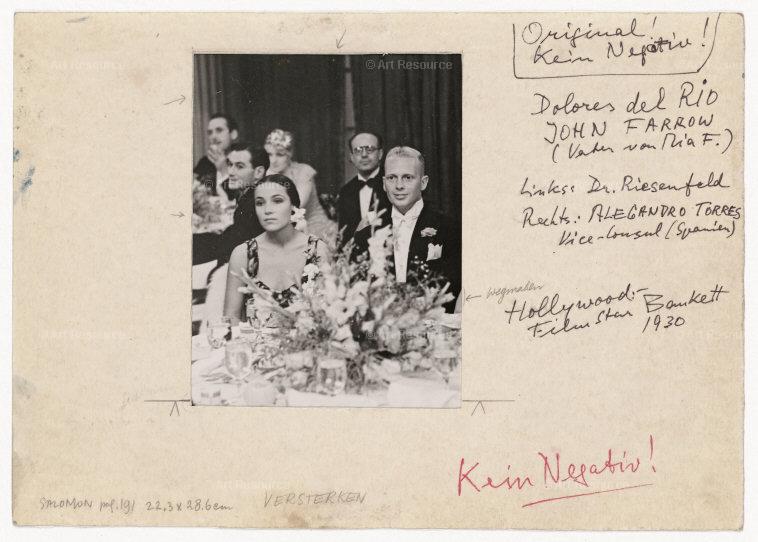 Original!
Kein Negativ!
© Art Resource
© Art Resource
Dolores del RIO
JOHN FARROW
(Vater von Mia F.)
Links: Dr. Riesenfeld
Rechts: ALEGANDRO TORRES
Vice-Consul (Spanien)
← wegmaken
Hollywood-
Filmstar Bankett
1930
Kein Negativ!
SALOMON 22.3 x 28.6 cm VERSTERKEN
Art Resource